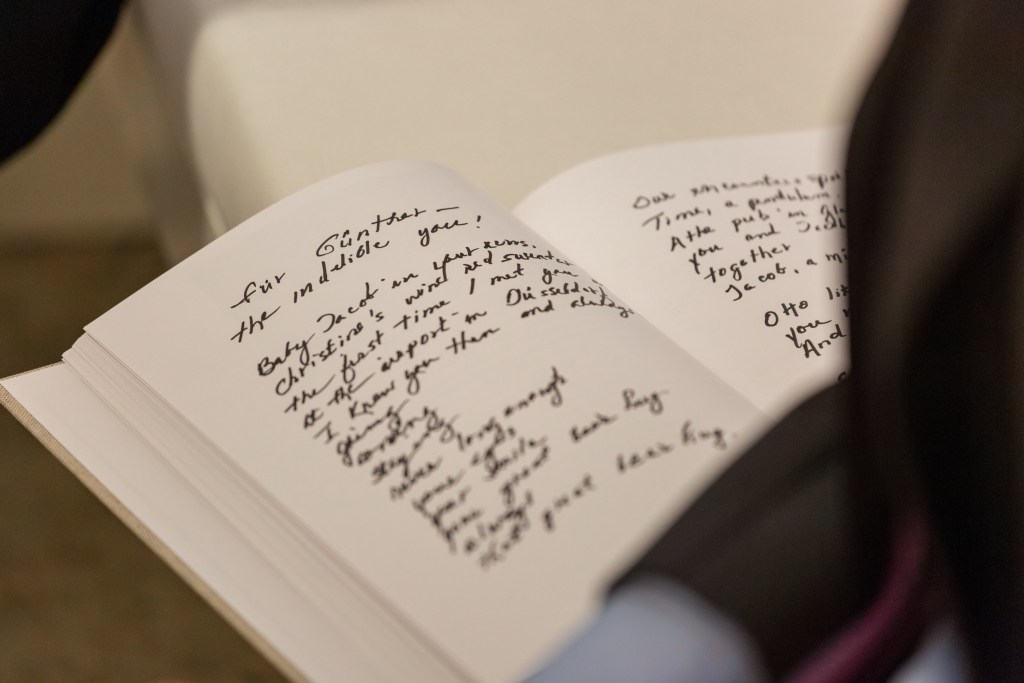 Für Günther—
the indelible you!
Baby Jacob in your arms.
Christine's wine red sweater
the first time I met you
at the airport in Düsseldorf
I knew you then and always
going
working
staying
never long enough
your eyes,
your smile
your great bear hug
always
that great bear hug.
Our encounters
Time, a pendulum
At the pub in
you and
together
Jacob, a
Otto
you
And